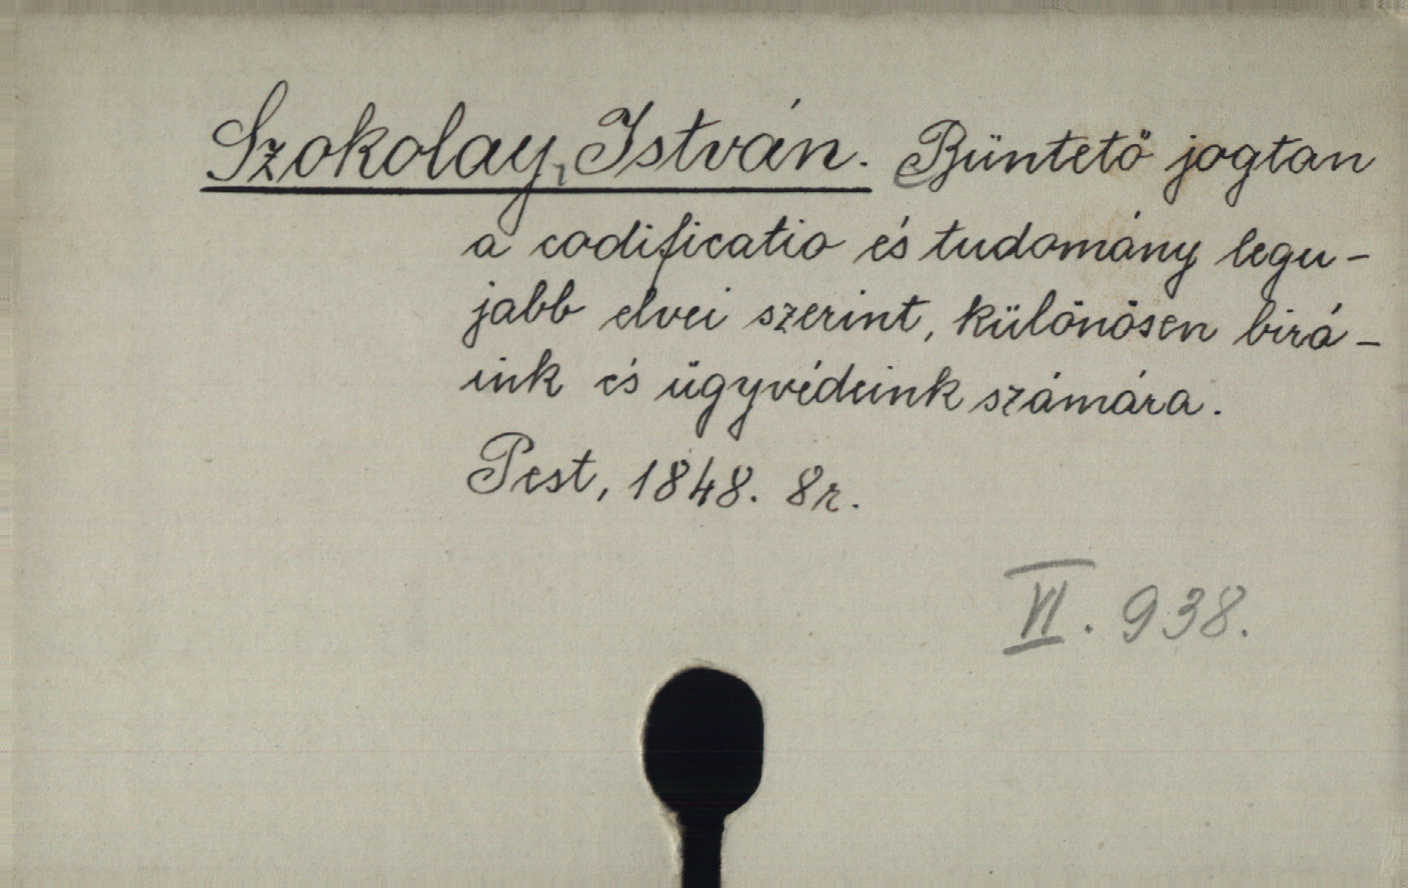 Szokolay, István. Büntető jogtan
a codificatio és tudomány legu-
jabb elvei szerint, különösen birá-
ink és ügyvédeink számára.
Pest, 1848. 8r.
VI. 938.